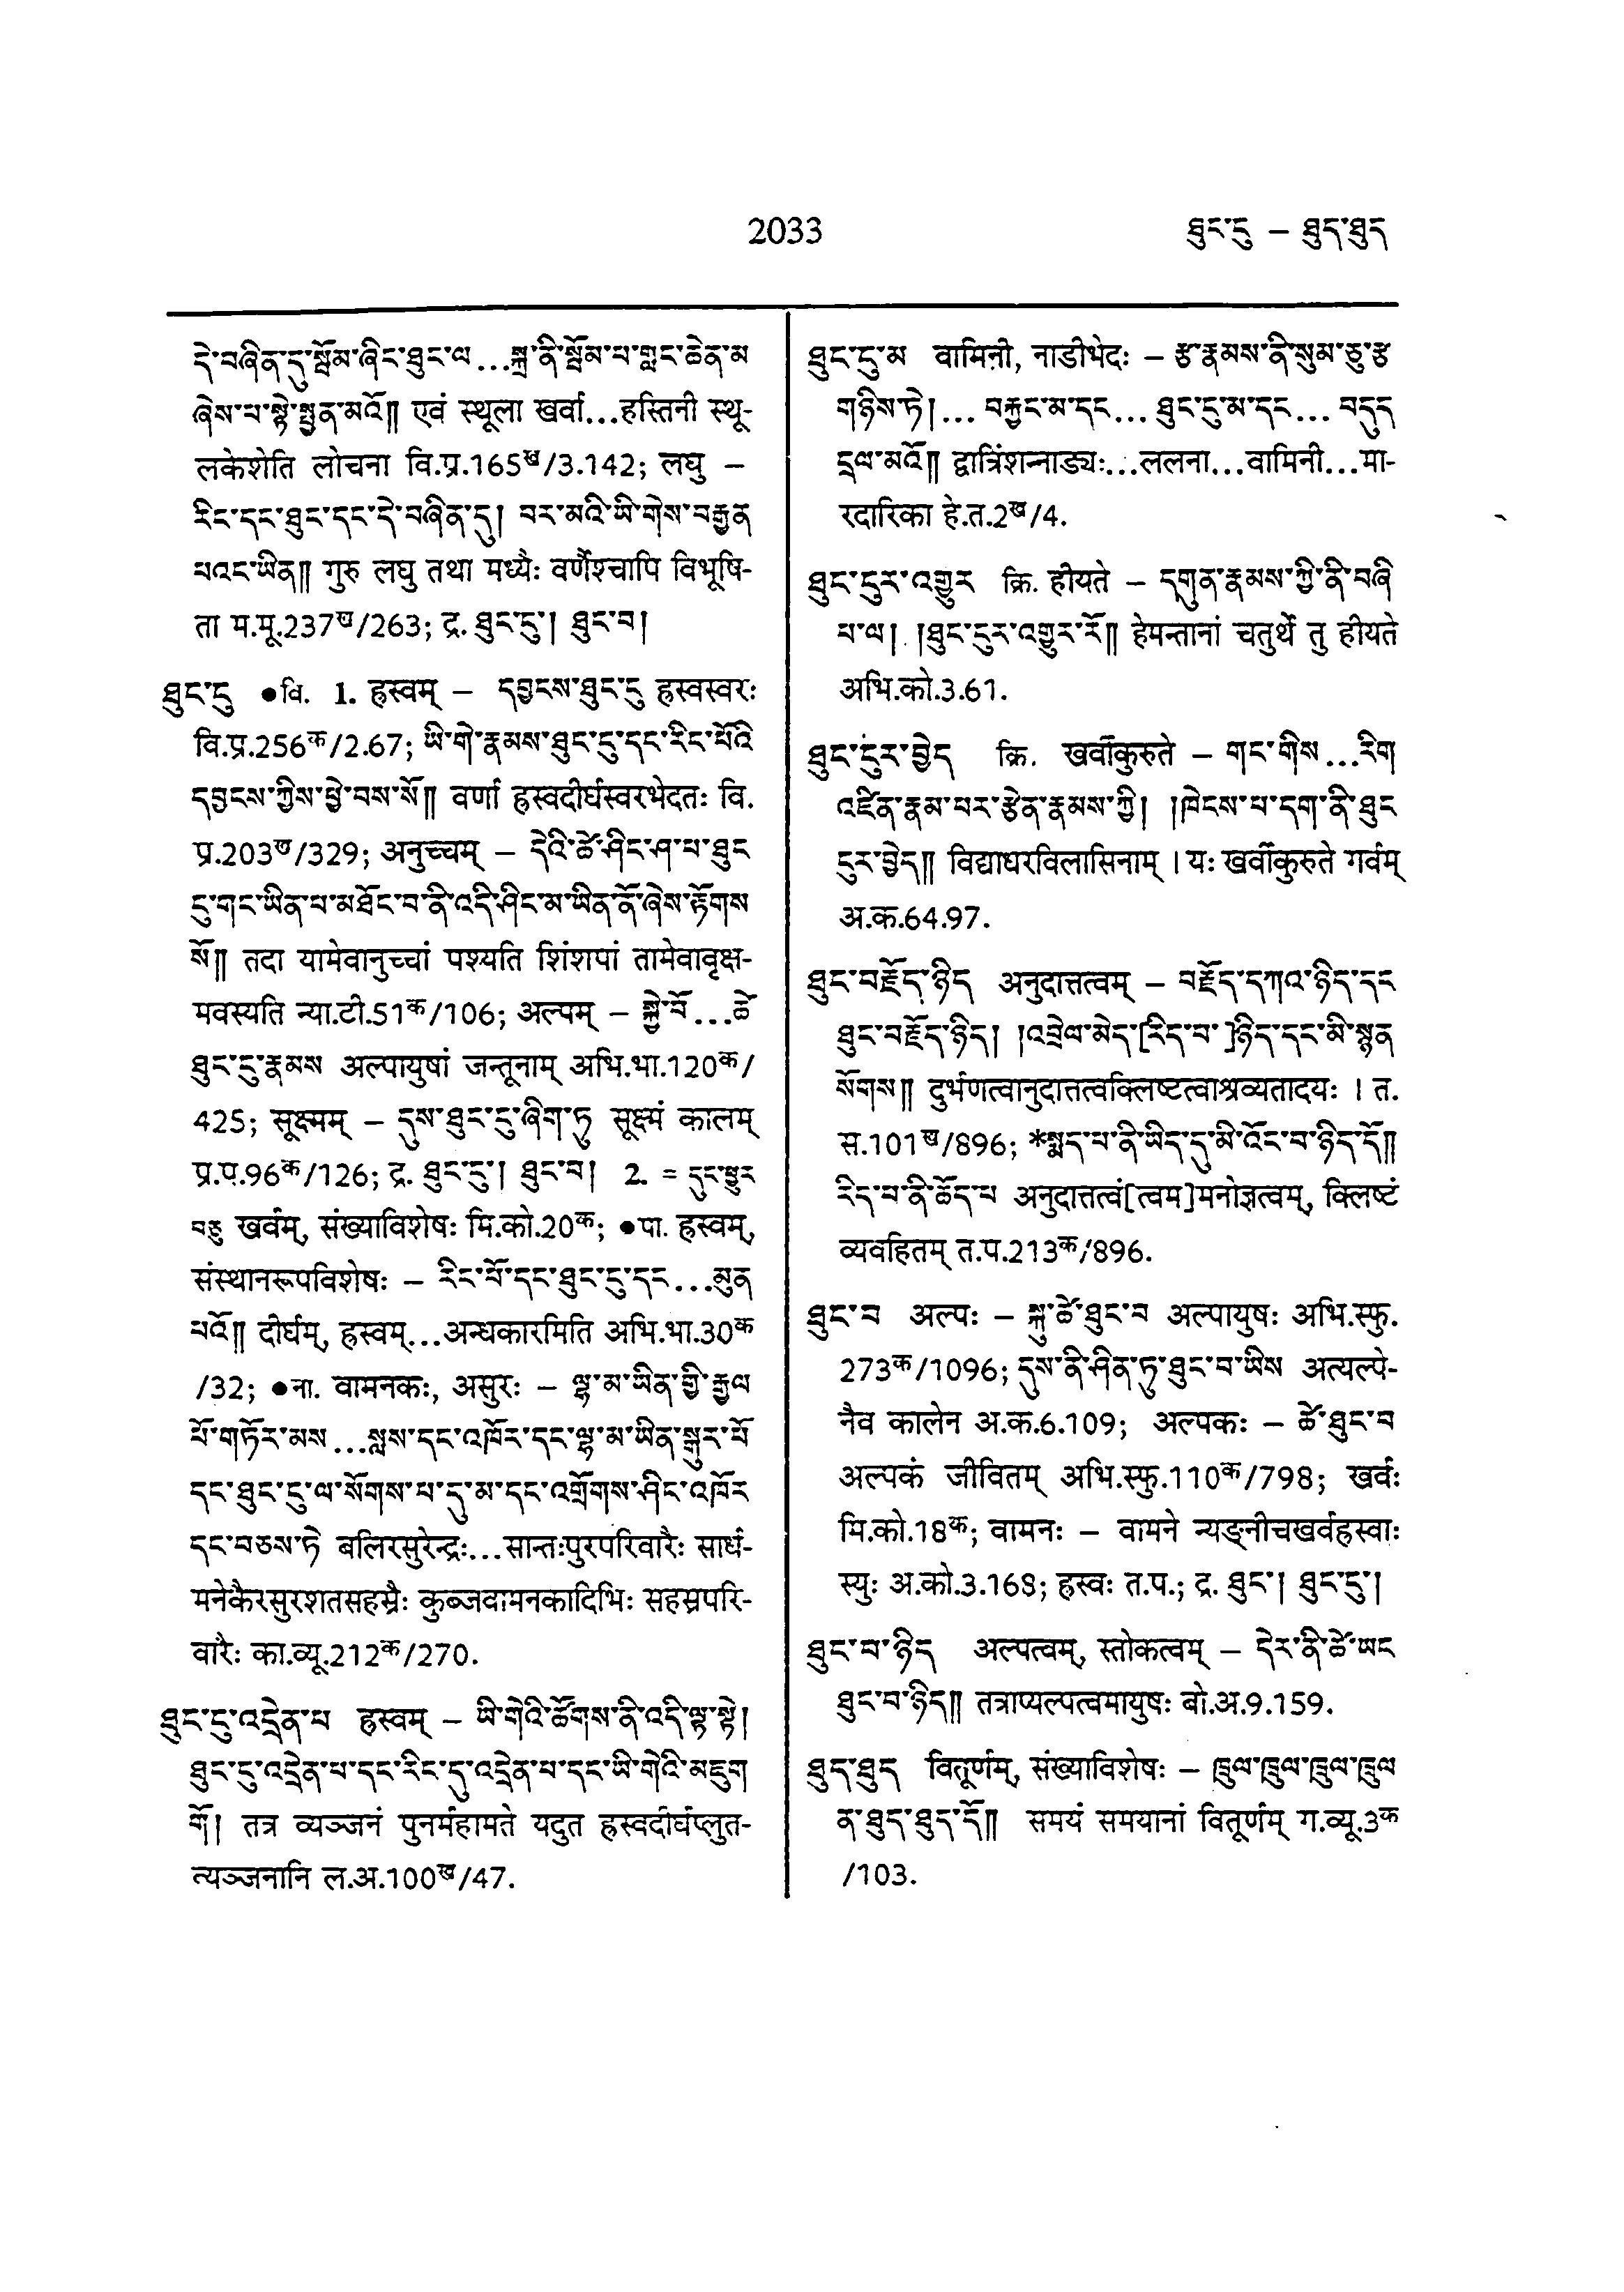 2033
ཐུང་ངུ – ཐུད་ཐུད
དེ་བཞིན་དུ་སྦོམ་ཞིང་ཐུང་ལ...སྐྲ་ནི་སྦོམ་པ་གླང་ཆེན་མ
ཞེས་པ་སྟེ་སྤྱན་མའོ༎ एवं स्थूला खर्वा...हस्तिनी स्थू-
लकेशेति लोचना वि.प्र.165ख/3.142; लघु –
རིང་དང་ཐུང་དང་དེ་བཞིན་དུ། བར་མའི་ཡི་གེས་བརྒྱན
པའང་ཡིན༎ गुरु लघु तथा मध्यैः वर्णैश्चापि विभूषि-
ता म.मू.237ख/263; द्र. ཐུང་ངུ། ཐུང་བ།
ཐུང་ངུ ●वि. 1. ह्रस्वम् – དབྱངས་ཐུང་ངུ ह्रस्वस्वरः
वि.प्र.256क/2.67; ཡི་གེ་རྣམས་ཐུང་ངུ་དང་རིང་པོའི
དབྱངས་ཀྱིས་ཕྱེ་བས་སོ༎ वर्णा ह्रस्वदीर्घस्वरभेदतः वि.
प्र.203ख/329; अनुच्चम् – དེའི་ཚེ་ཤིང་ཤ་པ་ཐུང
ངུ་གང་ཡིན་པ་མཐོང་བ་ནི་འདི་ཤིང་མ་ཡིན་ནོ་ཞེས་རྟོགས
སོ༎ तदा यामेवानुच्चां पश्यति शिंशपां तामेवावृक्ष-
मवस्यति न्या.टी.51क/106; अल्पम् – སྐྱེ་བོ...ཚེ
ཐུང་ངུ་རྣམས अल्पायुषां जन्तूनाम् अभि.भा.120क/
425; सूक्ष्मम् – དུས་ཐུང་ངུ་ཞིག་ཏུ सूक्ष्मं कालम्
प्र.प.96क/126; द्र. ཐུང་ངུ། ཐུང་བ། 2. = དུང་ཕྱུར
བཅུ खर्वम्, संख्याविशेषः मि.को.20क; ●पा. ह्रस्वम्,
संस्थानरूपविशेषः – རིང་པོ་དང་ཐུང་ངུ་དང...མུན
པའོ༎ दीर्घम्, ह्रस्वम्...अन्धकारमिति अभि.भा.30क
/32; ●ना. वामनकः, असुरः – ལྷ་མ་ཡིན་གྱི་རྒྱལ
པོ་གཏོར་མས...སླས་དང་འཁོར་དང་ལྷ་མ་ཡིན་སྒུར་པོ
དང་ཐུང་ངུ་ལ་སོགས་པ་དུ་མ་དང་འགྲོགས་ཤིང་འཁོར
དང་བཅས་ཏེ बलिरसुरेन्द्रः...सान्तःपुरपरिवारैः सार्ध-
मनेकैरसुरशतसहस्रैः कुब्जवामनकादिभिः सहस्रपरि-
वारैः का.व्यू.212क/270.
ཐུང་ངུ་འདྲེན་པ ह्रस्वम् – ཡི་གེའི་ཚོགས་ནི་འདི་ལྟ་སྟེ།
ཐུང་ངུ་འདྲེན་པ་དང་རིང་དུ་འདྲེན་པ་དང་ཡི་གེའི་མཇུག
གོ། तत्र व्यञ्जनं पुनर्महामते यदुत ह्रस्वदीर्घप्लुत-
व्यञ्जनानि ल.अ.100ख/47.
ཐུང་ངུ་མ वामिनी, नाडीभेदः – རྩ་རྣམས་ནི་སུམ་ཅུ་རྩ
གཉིས་ཏེ།... བརྐྱང་མ་དང... ཐུང་ངུ་མ་དང... བདུད
དྲལ་མའོ༎ द्वात्रिंशन्नाड्यः...ललना...वामिनी...मा-
रदारिका हे.त.2ख/4.
ཐུང་ངུར་འགྱུར क्रि. हीयते – དགུན་རྣམས་ཀྱི་ནི་བཞི
པ་ལ། །ཐུང་ངུར་འགྱུར་རོ༎ हेमन्तानां चतुर्थे तु हीयते
अभि.को.3.61.
ཐུང་ངུར་བྱེད क्रि. खर्वीकुरुते – གང་གིས...རིག
འཛིན་རྣམ་པར་རྩེན་རྣམས་ཀྱི། །ཁེངས་པ་དག་ནི་ཐུང
ངུར་བྱེད༎ विद्याधरविलासिनाम् । यः खर्वीकुरुते गर्वम्
अ.क.64.97.
ཐུང་བརྗོད་ཉིད अनुदात्तत्वम् – བརྗོད་དཀའ་ཉིད་དང
ཐུང་བརྗོད་ཉིད། །འབྲེལ་མེད་[རིད་བ་]ཉིད་དང་མི་སྙན
སོགས༎ दुर्भणत्वानुदात्तत्वक्लिष्टत्वाश्रव्यतादयः । त.
स.101ख/896; *སྨད་པ་ནི་ཡིད་དུ་མི་འོང་བ་ཉིད་དོ༎
རིད་བ་ནི་ཆོད་པ अनुदात्तत्वं[त्वम]मनोज्ञत्वम्, क्लिष्टं
व्यवहितम् त.प.213क/896.
ཐུང་བ अल्पः – སྐུ་ཚེ་ཐུང་བ अल्पायुषः अभि.स्फु.
273क/1096; དུས་ནི་ཤིན་ཏུ་ཐུང་བ་ཡིས अत्यल्पे-
नैव कालेन अ.क.6.109; अल्पकः – ཚེ་ཐུང་བ
अल्पकं जीवितम् अभि.स्फु.110क/798; खर्वः
मि.को.18क; वामनः – वामने न्यङ्नीचखर्वह्रस्वाः
स्युः अ.को.3.168; ह्रस्वः त.प.; द्र. ཐུང་། ཐུང་ངུ།
ཐུང་བ་ཉིད अल्पत्वम्, स्तोकत्वम् – དེར་ནི་ཚེ་ཡང
ཐུང་བ་ཉིད༎ तत्राप्यल्पत्वमायुषः बो.अ.9.159.
ཐུད་ཐུད वितूर्णम्, संख्याविशेषः – ཁྲུལ་ཁྲུལ་ཁྲུལ་ཁྲུལ
ན་ཐུད་ཐུད་དོ༎ समयं समयानां वितूर्णम् ग.व्यू.3क
/103.